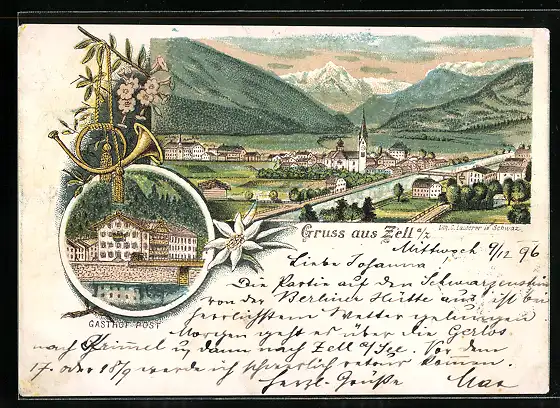 Gruss aus Zell a/Z
Lith. C. Lauterer in Schwaz.
GASTHOF POST
Mittwoch 9/12 96
Liebe Johanna
Die Partie auf den Schwarzenstein
von der Berliner Hütte aus ist bei
herrlichstem Wetter gelungen
Morgen geht es über die Gerlos
nach Krimml u. dann nach Zell a/See. Vor dem
17. oder 18/9 werde ich schwerlich retour kommen.
Herzl. Grüße Max